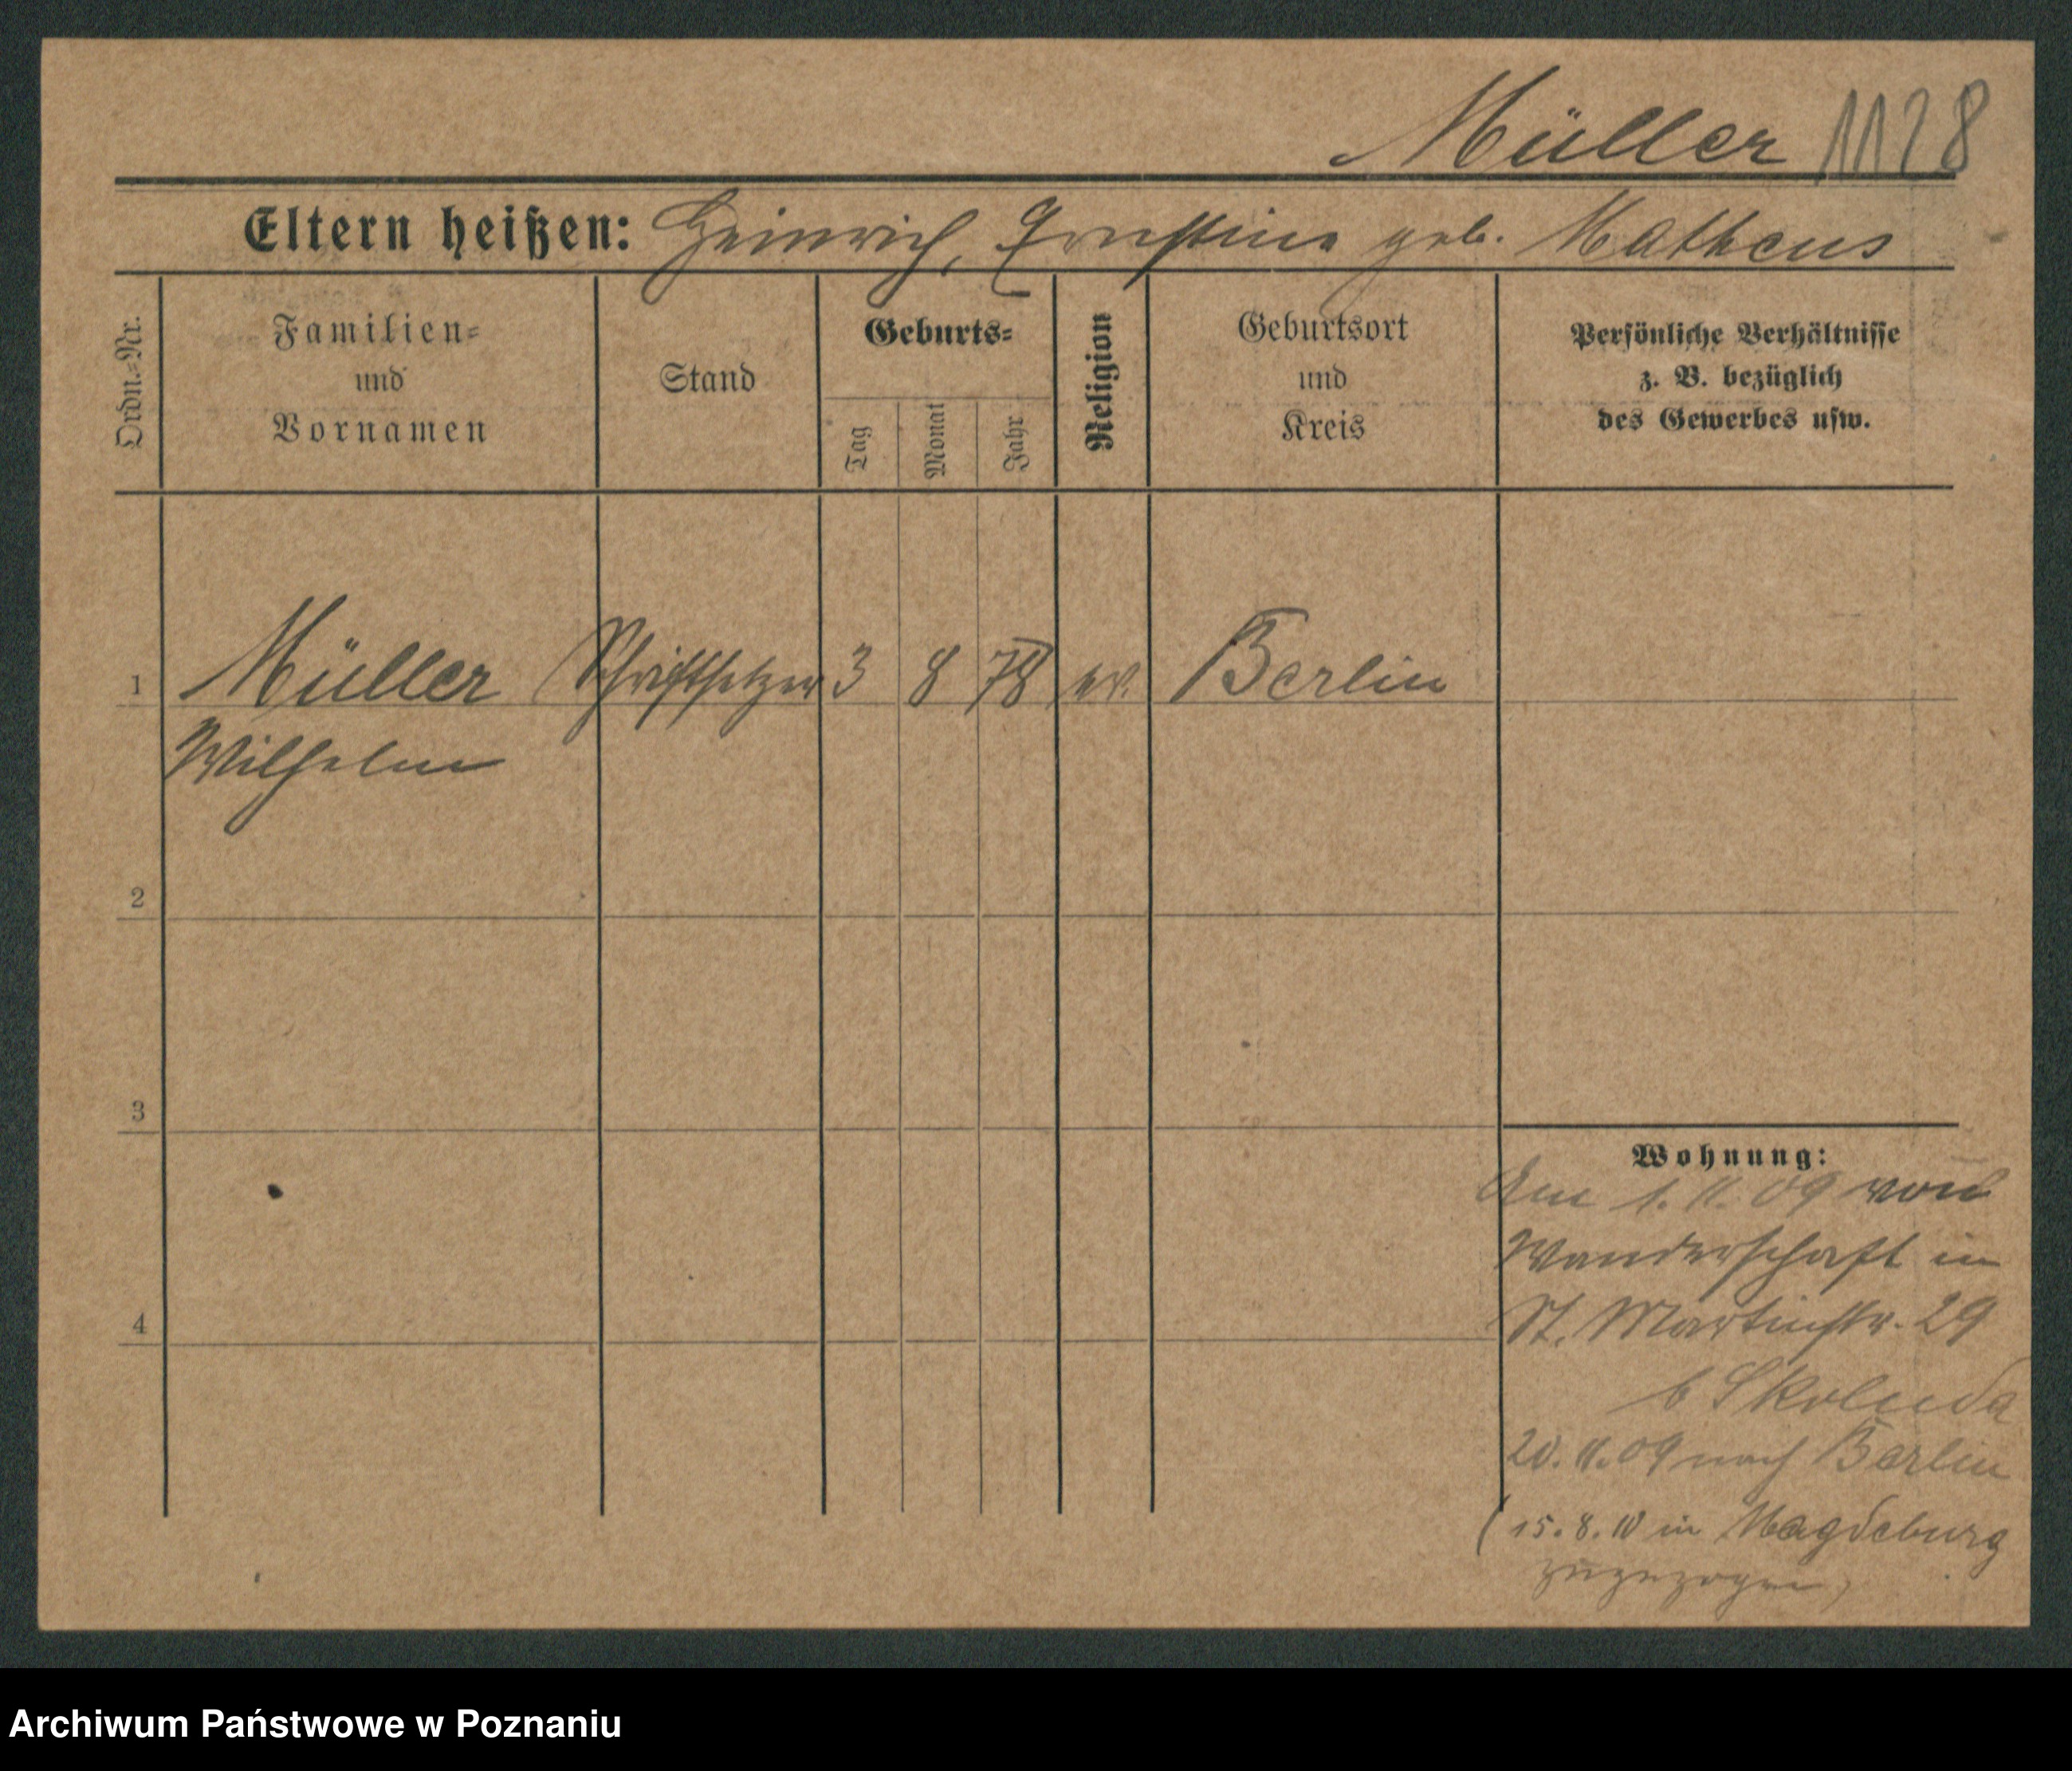 Müller 1128
Eltern heißen: Heinrich, Ernestine geb. Matheus
Ordn.-Nr.
Familien-
und
Vornamen
Stand
Geburts-
Tag
Monat
Jahr
Religion
Geburtsort
und
Kreis
Persönliche Verhältnisse
z. B. bezüglich
des Gewerbes usw.
1 Müller Schriftsetzer 3 8 78 ev. Berlin
Wilhelm
2
3
4
Wohnung:
Am 1. 11. 09 von
Wanderschaft in
St. Martinstr. 29
b Skoluda
20. 11. 09 nach Berlin
(15. 8. 10 in Magdeburg
zugezogen)
Archiwum Państwowe w Poznaniu